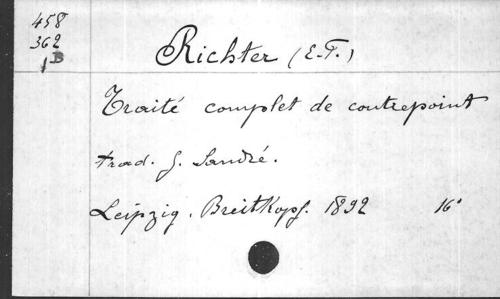 458
362
1 B
Richter (E.F.)
Traité complet de contrepoint
trad. G. Sandré.
Leipzig. Breitkopf. 1892 16°